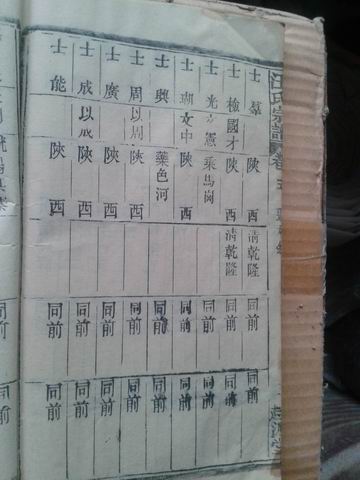 汪氏宗譜 卷
士羣 陝西 清乾隆 同前 同前
士檢 國才 陝西 清乾隆 同前 同前
士光 憲 乘馬崗 同前 同前
士瑚 文中 陝西 同前 同前
士興 藥色河 同前 同前
士周 以周 陝西 同前 同前
士廣 陝西 同前 同前
士成 以成 陝西 同前 同前
士能 陝西 同前 同前